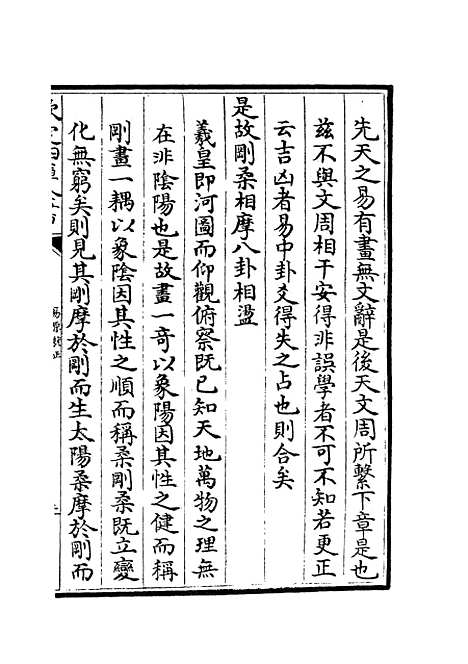 先天之易有畫無文辭是後天文周所繫下章是也
茲不與文周相干安得非誤學者不可不知若更正
云吉凶者易中卦爻得失之占也則合矣
是故剛柔相摩八卦相盪
羲皇即河圖而仰觀俯察既已知天地萬物之理無
在非陰陽也是故畫一奇以象陽因其性之健而稱
剛畫一耦以象陰因其性之順而稱柔剛柔既立變
化無窮矣則見其剛摩於剛而生太陽柔摩於剛而